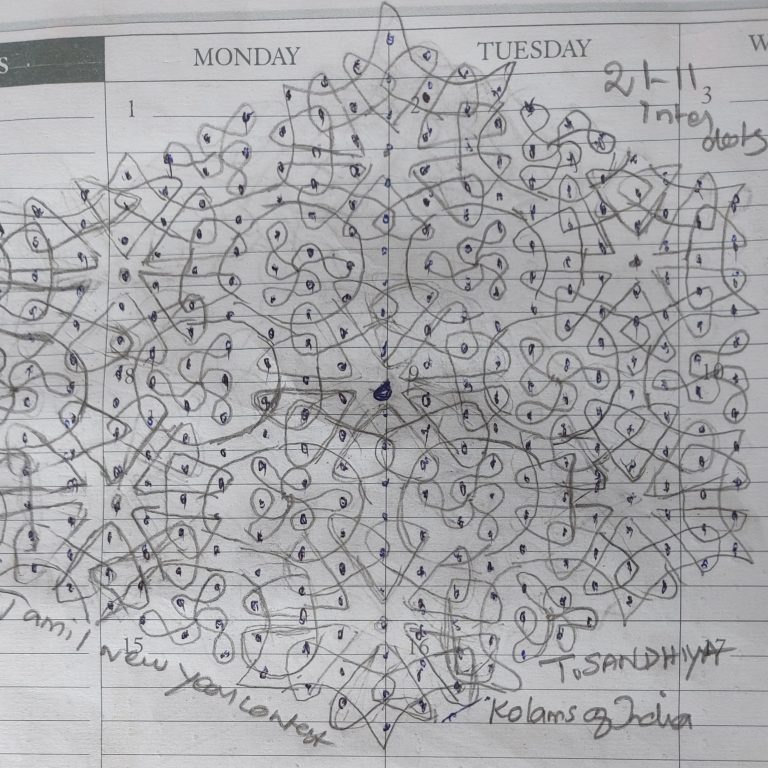 S
MONDAY
TUESDAY
W
1
2
3
21-11
Inter
dots
8
9
10
Tamil New year contest
15
16
17
T. SANDHIYA
Kolams of India